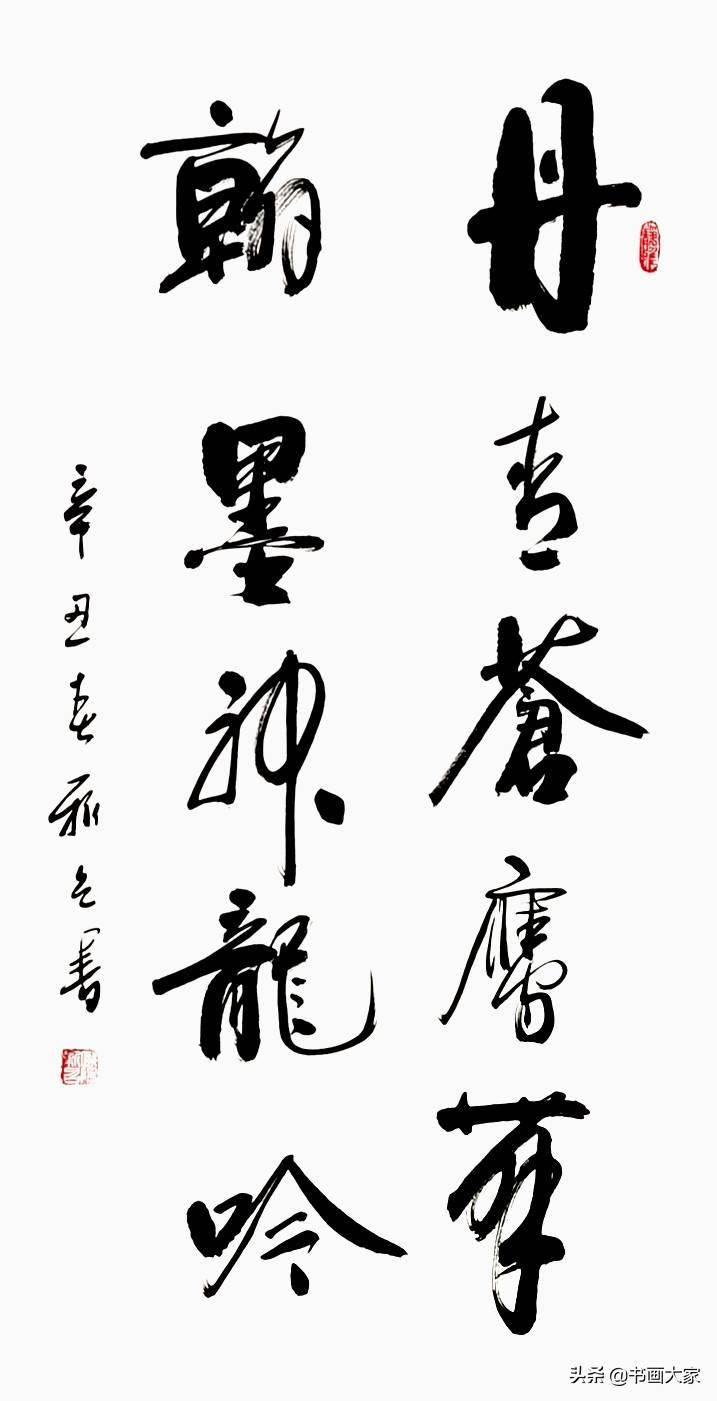 丹青蒼鷹舞
翰墨神龍吟
辛丑春雅之書
头条 @书画大家